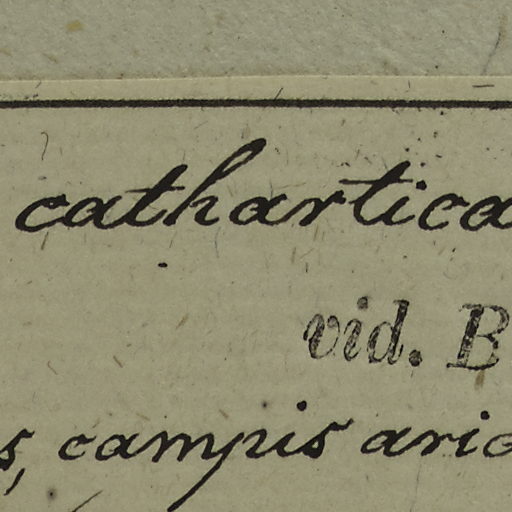 cathartica
vid. B
s, campis arid